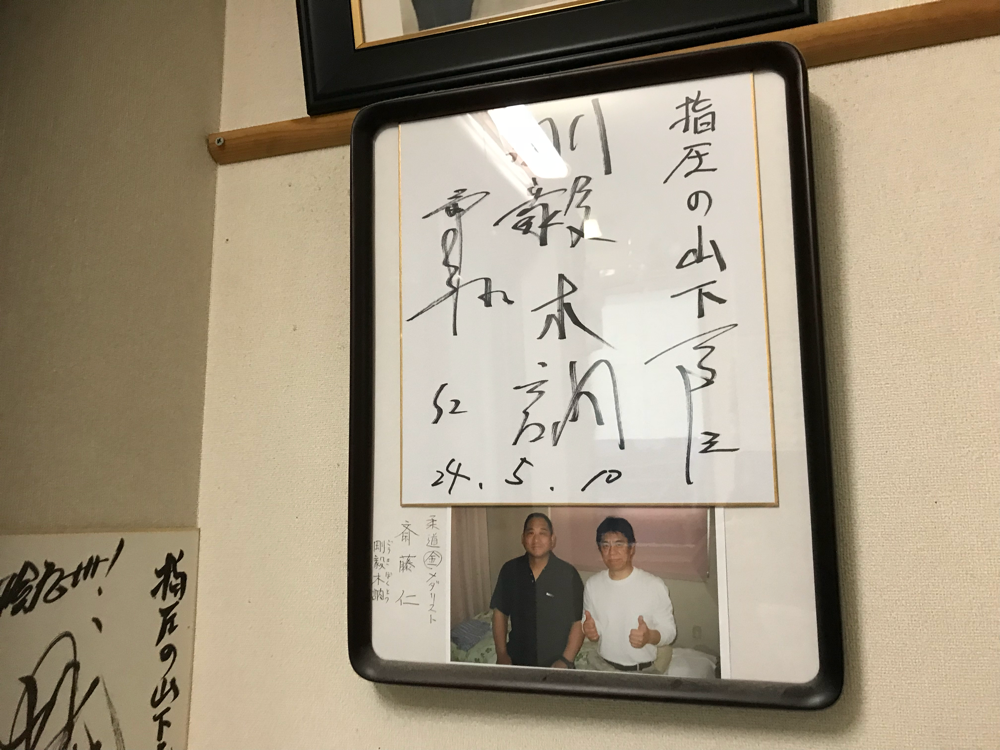 指圧の山下
剛毅
木訥
斉藤
仁
24.5.10
柔道金メダリスト
斉藤 仁
ごうきぼくとつ
剛毅木訥
指圧の山下